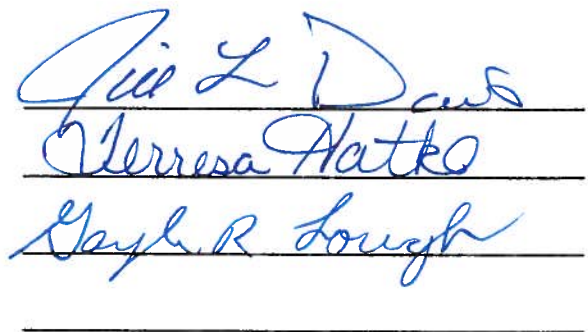 Jill L Davis
Terresa Hatko
Gayle R Lough